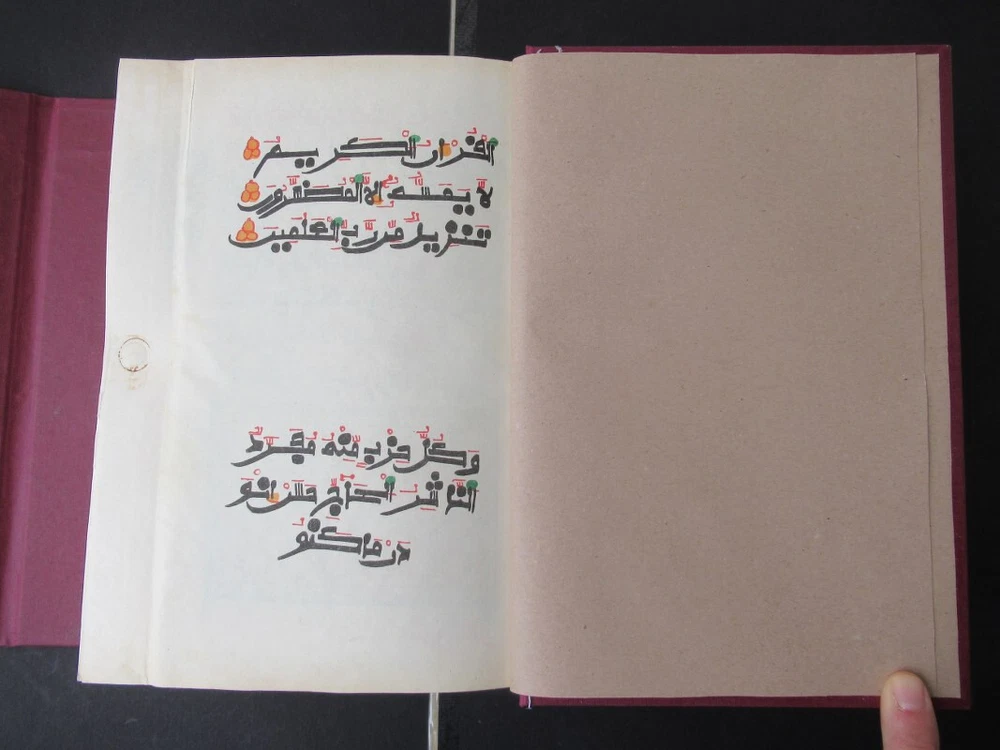 القرءان الكريم
لا يمسه إلا المطهرون
تنزيل من رب العلمين
وكل حزب منه مجرد
الناشر الحاج
در ماكنو